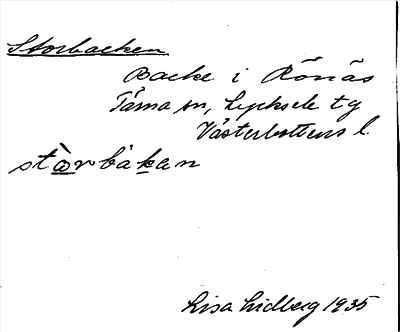 Storbacken
Backe i Rönäs
Tärna sn, Lycksele tg
Västerbottens l.
stòrbàkan
Lisa Lidberg 1935